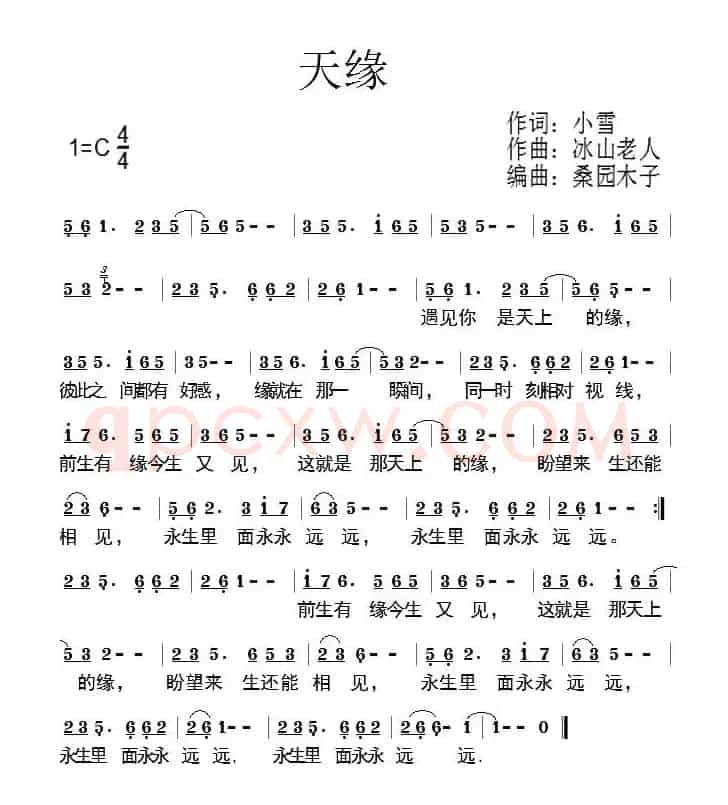 天缘
1=C 4/4
作词：小雪
作曲：冰山老人
编曲：桑园木子
5 6 1. 2 3 5 | 5 6 5 - - | 3 5 5. i 6 5 | 5 3 5 - - | 3 5 6. i 6 5 |
3
5 3 2 - - | 2 3 5. 6 6 2 | 2 6 1 - - | 5 6 1. 2 3 5 | 5 6 5 - - |
遇见你 是天上 的缘，
3 5 5. i 6 5 | 3 5 - - | 3 5 6. i 6 5 | 5 3 2 - - | 2 3 5. 6 6 2 | 2 6 1 - - |
彼此之 间都有 好感， 缘就在 那一 瞬间， 同一时 刻相对 视线，
i 7 6. 5 6 5 | 3 6 5 - - | 3 5 6. i 6 5 | 5 3 2 - - | 2 3 5. 6 5 3 |
前生有 缘今生 又见， 这就是 那天上 的缘， 盼望来 生还能
2 3 6 - - | 5 6 2. 3 i 7 | 6 3 5 - - | 2 3 5. 6 6 2 | 2 6 1 - - :||
相见， 永生里 面永永 远远， 永生里 面永永 远远。
2 3 5. 6 6 2 | 2 6 1 - - | i 7 6. 5 6 5 | 3 6 5 - - | 3 5 6. i 6 5 |
前生有 缘今生 又见， 这就是 那天上
5 3 2 - - | 2 3 5. 6 5 3 | 2 3 6 - - | 5 6 2. 3 i 7 | 6 3 5 - - |
的缘， 盼望来 生还能 相见， 永生里 面永永 远远，
2 3 5. 6 6 2 | 2 6 1 - - | 2 3 5. 6 6 2 | 2 6 - i | i - - 0 ||
永生里 面永永 远远， 永生里 面永永 远 远.
qpcxw.COM